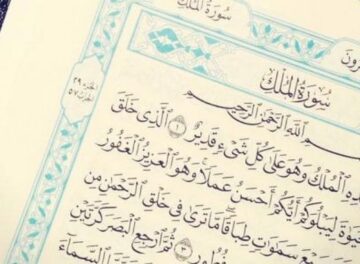 سُورَةُ المُلْكِ
الجزء ٢٩
الحزب ٥٧
سُورَةُ المُلْكِ
بِسْمِ ٱللَّهِ ٱلرَّحْمَٰنِ ٱلرَّحِيمِ
ٱلْمُلْكُ وَهُوَ عَلَىٰ كُلِّ شَىْءٍ قَدِيرٌ ١ ٱلَّذِى خَلَقَ
لِيَبْلُوَكُمْ أَيُّكُمْ أَحْسَنُ عَمَلًا وَهُوَ ٱلْعَزِيزُ ٱلْغَفُورُ
سَمَٰوَٰتٍ طِبَاقًا مَّا تَرَىٰ فِى خَلْقِ ٱلرَّحْمَٰنِ مِن
فُطُورٍ ٣ ثُمَّ ٱرْجِعِ ٱلْبَصَرَ كَرَّتَيْنِ
ٱلسَّمَآءَ